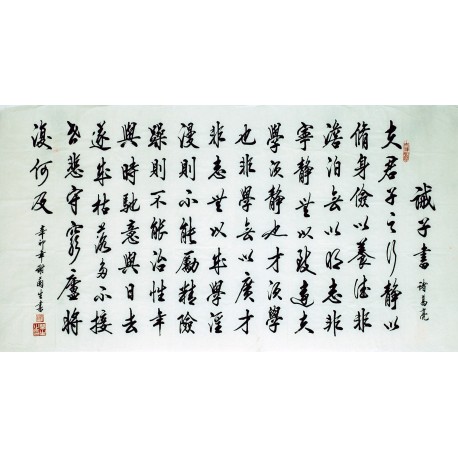 誡子書
諸葛亮
夫君子之行静以
脩身儉以養德非
澹泊無以明志非
寧静無以致遠夫
學須静也才須學
也非學無以廣才
非志無以成學淫
漫則不能勵精險
躁則不能治性年
與時馳意與日去
遂成枯落多不接
世悲守窮廬將
復何及
辛卯年
書